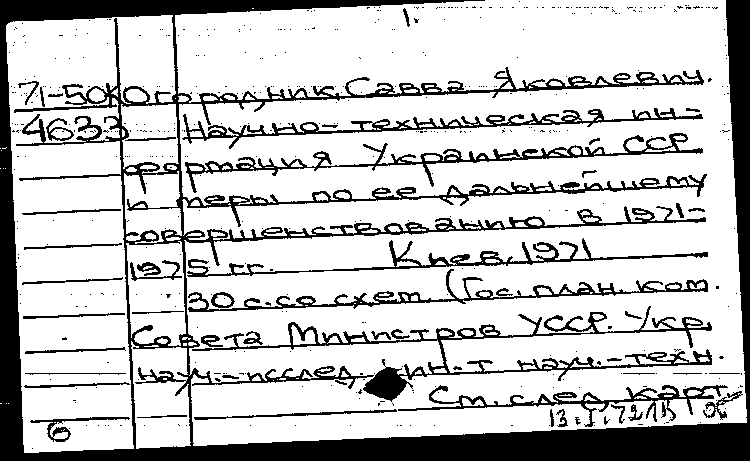 1.
71-50К Огородник, Савва Яковлевич.
4633 Научно-техническая ин-
формация Украинской ССР
и меры по ее дальнейшему
совершенствованию в 1971-
1975 гг. Киев, 1971
30 с. со схем. (Гос. план. ком.
Совета Министров УССР. Укр.
науч.-исслед. ин-т науч.-техн.
См. след. карт.
6 13.I.72